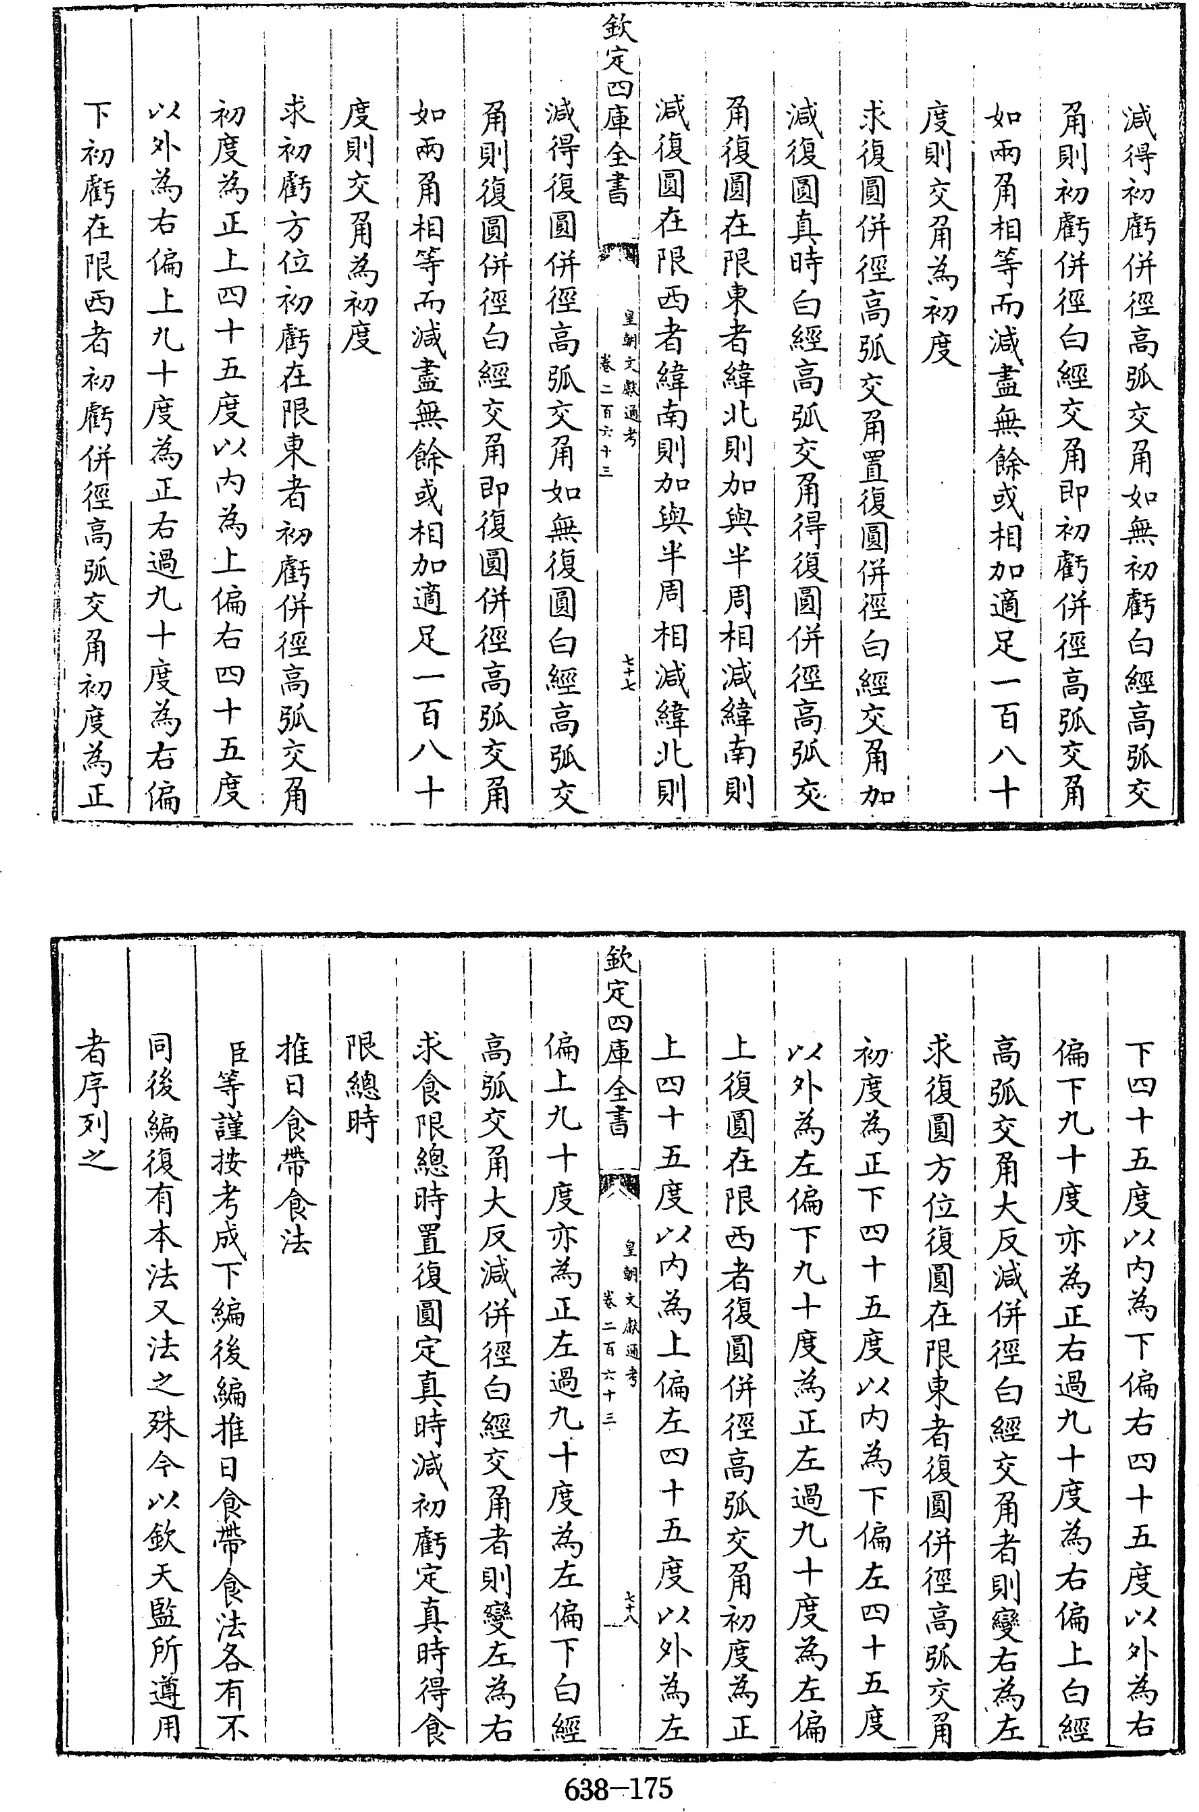 減得初虧併徑高弧交角如無初虧白經高弧交
角則初虧併徑白經交角即初虧併徑高弧交角
如兩角相等而減盡無餘或相加適足一百八十
度則交角為初度
求復圓併徑高弧交角置復圓併徑白經交角加
減復圓真時白經高弧交角得復圓併徑高弧交
角復圓在限東者緯北則加與半周相減緯南則
減復圓在限西者緯南則加與半周相減緯北則
欽定四庫全書
皇朝文獻通考
卷二百六十三
七十七
減得復圓併徑高弧交角如無復圓白經高弧交
角則復圓併徑白經交角即復圓併徑高弧交角
如兩角相等而減盡無餘或相加適足一百八十
度則交角為初度
求初虧方位初虧在限東者初虧併徑高弧交角
初度為正上四十五度以內為上偏右四十五度
以外為右偏上九十度為正右過九十度為右偏
下初虧在限西者初虧併徑高弧交角初度為正
下四十五度以內為下偏右四十五度以外為右
偏下九十度亦為正右過九十度為右偏上白經
高弧交角大反減併徑白經交角者則變右為左
求復圓方位復圓在限東者復圓併徑高弧交角
初度為正下四十五度以內為下偏左四十五度
以外為左偏下九十度為正左過九十度為左偏
上復圓在限西者復圓併徑高弧交角初度為正
上四十五度以內為上偏左四十五度以外為左
欽定四庫全書
皇朝文獻通考
卷二百六十三
七十八
偏上九十度亦為正左過九十度為左偏下白經
高弧交角大反減併徑白經交角者則變左為右
求食限總時置復圓定真時減初虧定真時得食
限總時
推日食帶食法
臣等謹按考成下編後編推日食帶食法各有不
同後編復有本法又法之殊今以欽天監所遵用
者序列之
638-175